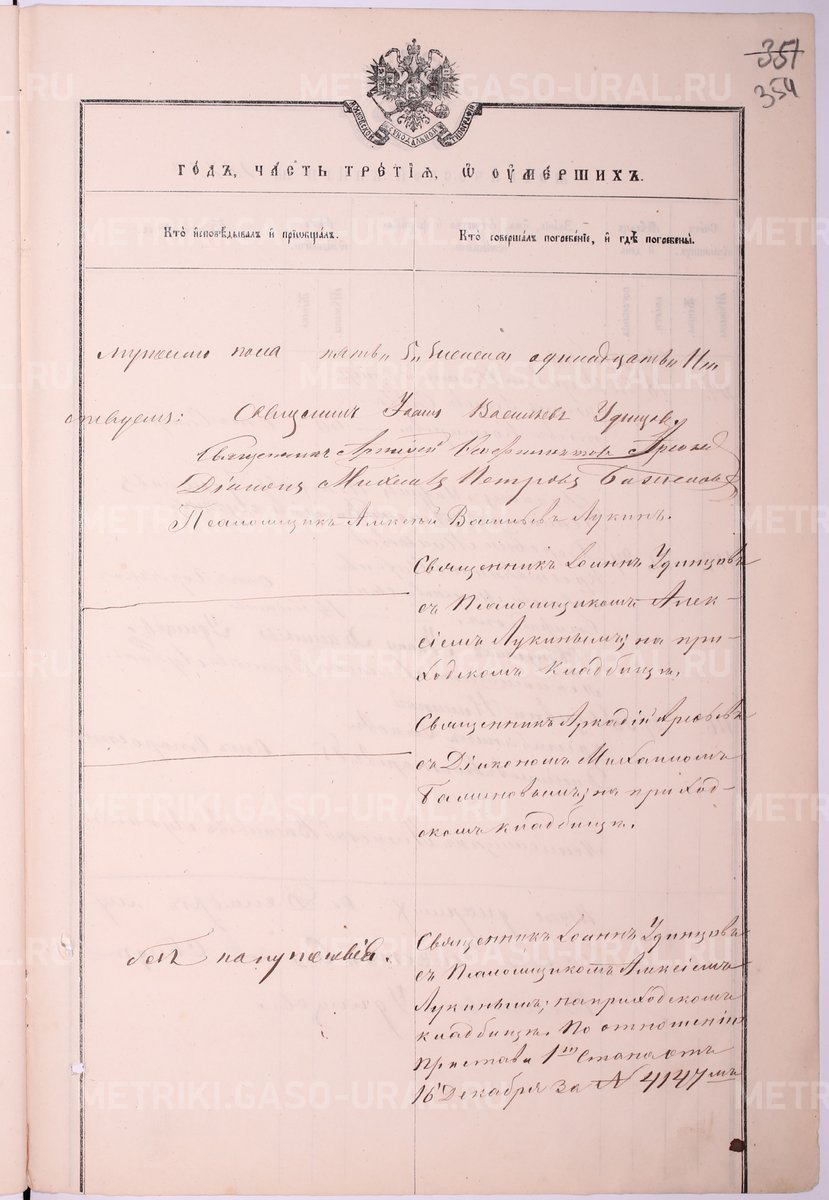 357
354
МОСКОВСКОЙ СѴНОДАЛЬНОЙ ТИПОГРАФІИ
ГОДЪ, ЧАСТЬ ТРЕТІЯ, Ѡ ОУМЕРШИХЪ.
Кто исповѣдывалъ и пріобщалъ.
Кто совершалъ погребеніе, и гдѣ погребены.
мужскаго пола пять „5„ женска одинадцать „11„
Священникъ Іоаннъ Васильевъ Удинцовъ
Священникъ Аркадій
Діаконъ Михаилъ Петровъ
Псаломщикъ Алексій Васильевъ Лукинъ.
Священникъ Іоаннъ Удинцовъ
съ Псаломщикомъ Алек-
сіемъ Лукинымъ; на при-
ходскомъ кладбищѣ.
Священникъ Аркадій
съ Діакономъ Михаиломъ
на приход-
скомъ кладбищѣ.
безъ напутствія.
Священникъ Іоаннъ Удинцовъ
съ Псаломщикомъ Алексіемъ
Лукинымъ; на приходскомъ
кладбищѣ. По отношенію
Пристава 1го Стана отъ
16 Декабря за № 4147мъ
METRIKI.GASO-URAL.RU